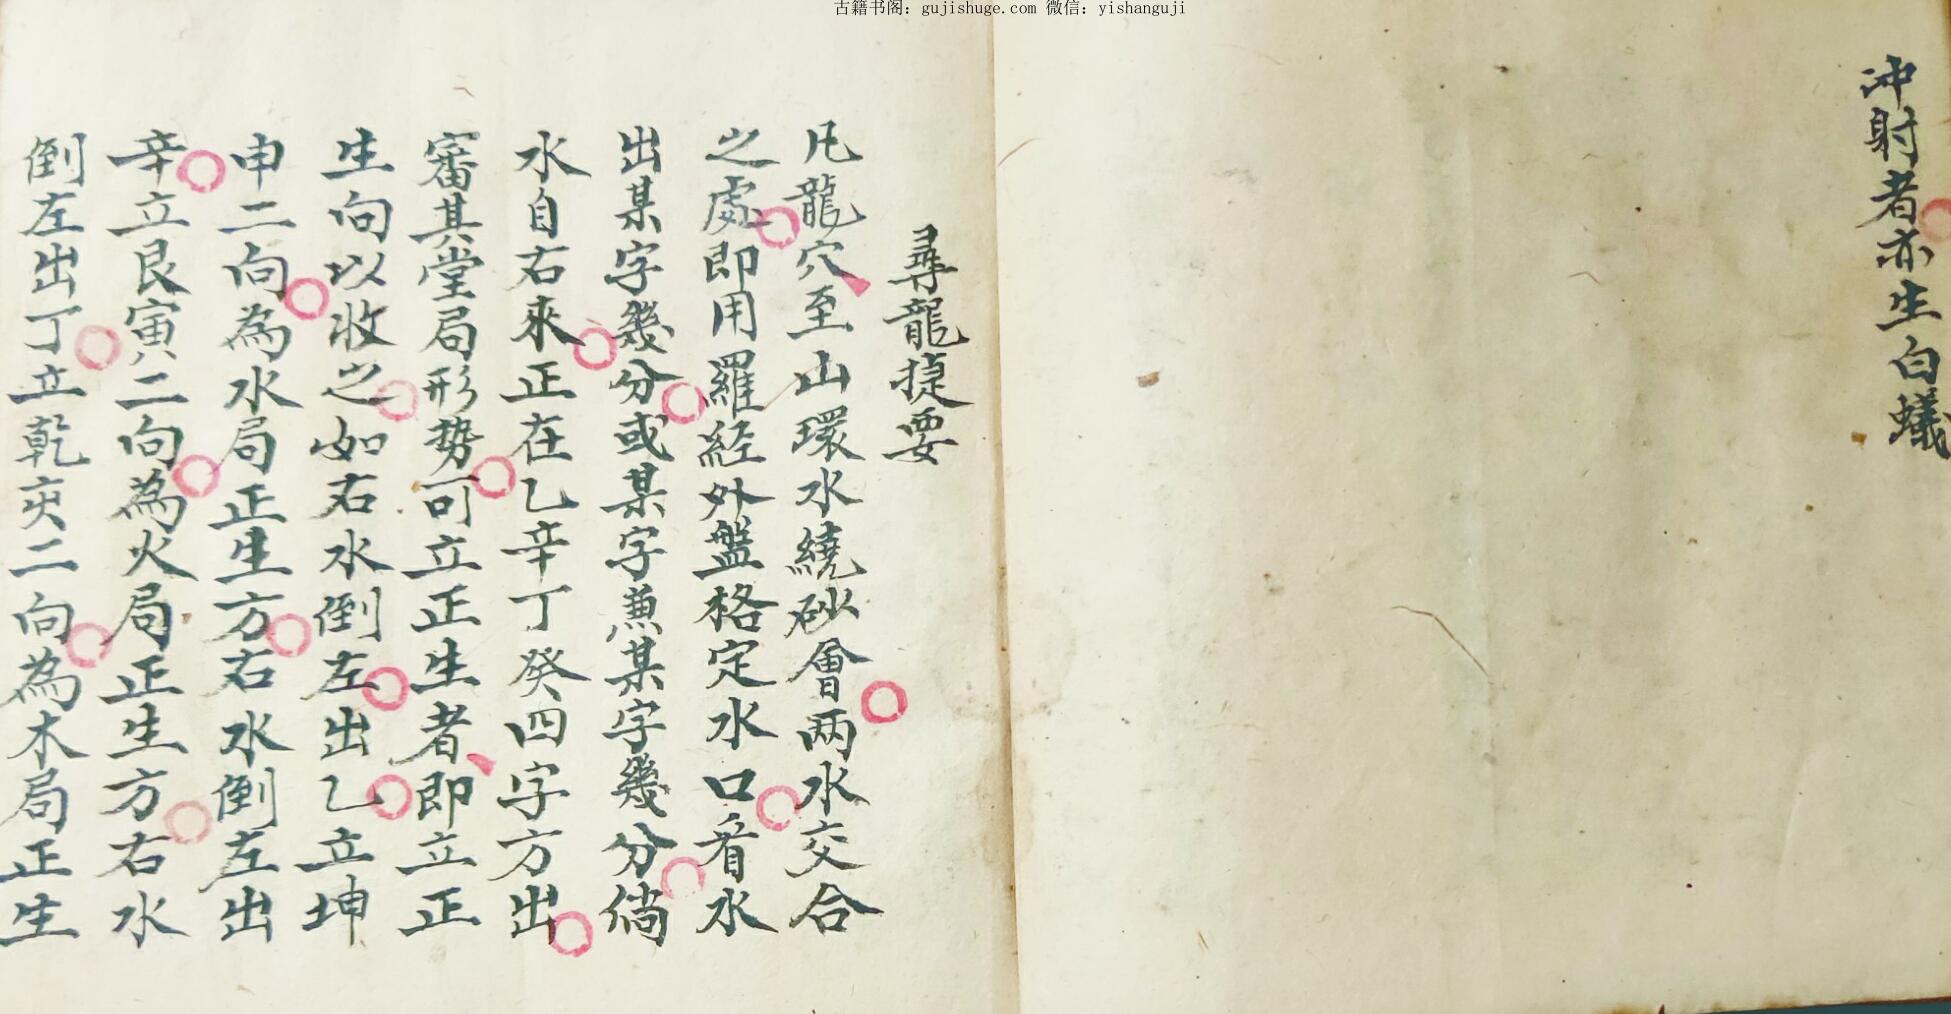 古籍书阁：gujishuge.com 微信：yishanguji
冲射者亦生白蟻
尋龍捷要
凡龍穴至山環水繞砂會两水交合
之處即用羅経外盤格定水口看水
出某字幾分或某字兼某字幾分倘
水自右來正在乙辛丁癸四字方出
審其堂局形势可立正生者即立正
生向以收之如右水倒左出乙立坤
申二向為水局正生方右水倒左出
辛立艮寅二向為火局正生方右水
倒左出丁立乾亥二向為木局正生